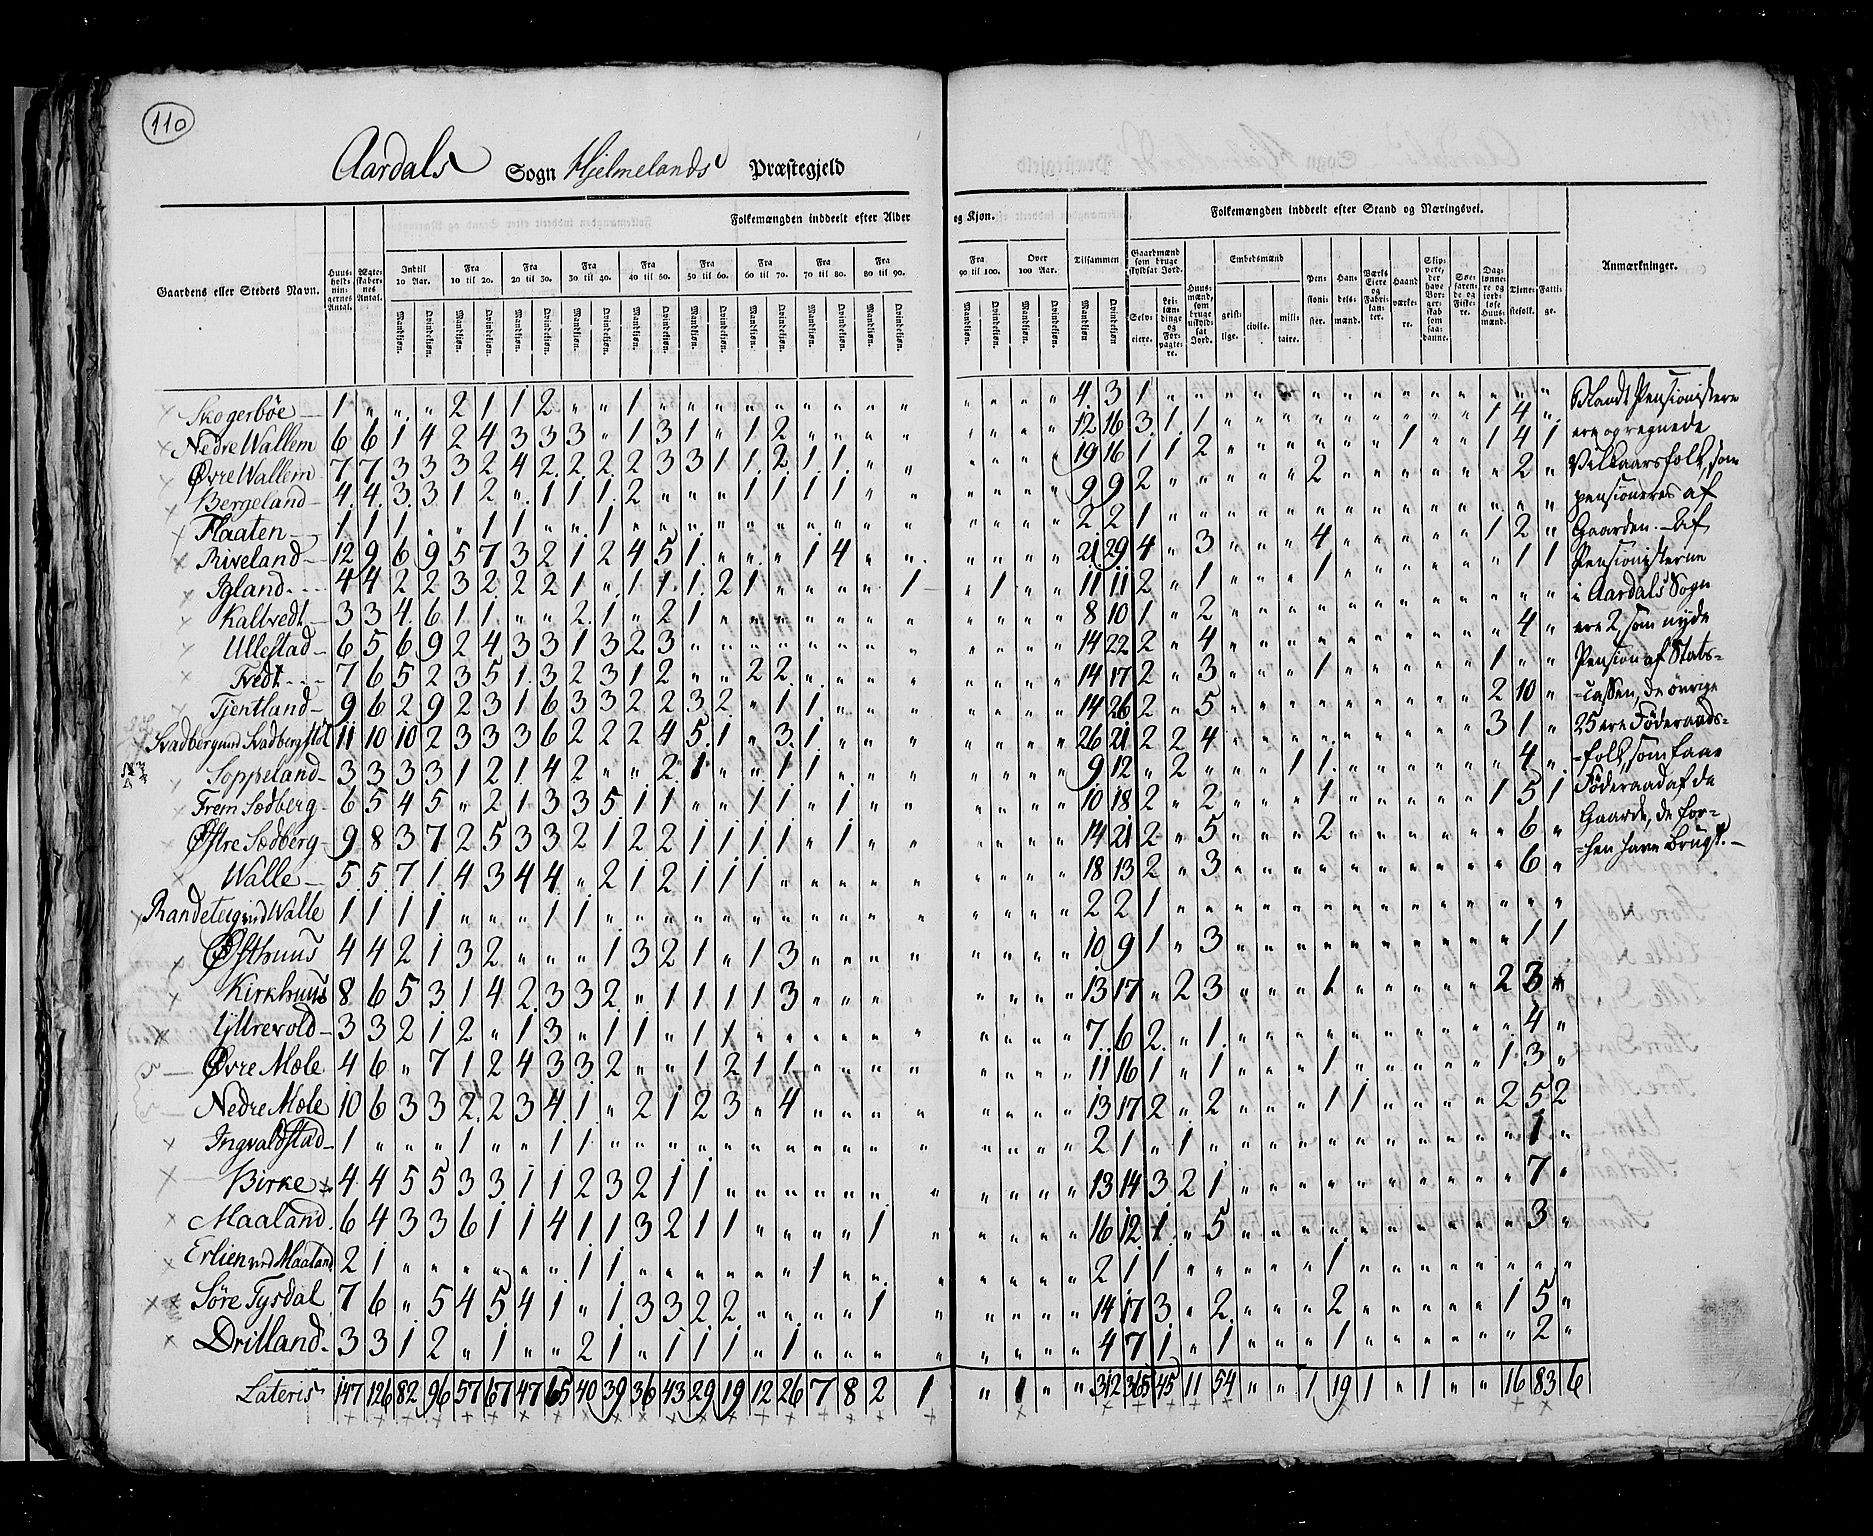 110
Aardals Sogn Hjelmelands Præstegjeld
Gaardens eller Stedets Navn.
Huus-
hold-
nin-
gernes
Antal.
Ægte-
skaber-
nes
Antal.
Folkemængden inddeelt efter Alder og Kjøn.
Indtil 10 Aar.
Fra 10 til 20.
Fra 20 til 30.
Fra 30 til 40.
Fra 40 til 50.
Fra 50 til 60.
Fra 60 til 70.
Fra 70 til 80.
Fra 80 til 90.
Fra 90 til 100.
Over 100 Aar.
Tilsammen
Mandkjøn. Qvindekjøn.
Folkemængden inddeelt efter Stand og Næringsvei.
Gaardmænd som bruge skyldsat Jord.
Selv-
eiere.
Lei-
læn-
dinge
og
For-
pagte-
re.
Huus-
mænd,
som
bruge
uskyld-
sat
Jord.
Embedsmænd
geist-
lige.
civile.
mili-
taire.
Pen-
sioni-
ster.
Han-
dels-
mænd.
Værks
Eiere
og
Fabri-
kan-
ter.
Haand
værke-
re.
Skip-
pere,
der
have
Bor-
ger-
skab
som
saa-
danne.
Søe-
faren-
de og
Fiske-
re.
Dag-
lønne-
re og
jord-
løse
Huus-
mænd.
Tjene-
stefolk.
Fatti-
ge.
Anmærkninger.
Skogerbøe 1 " " " 2 1 1 2 " " 1 " " " " " " " " " " " " " 4 3 1 " " " " " " " " " " " " " "
Nedre Wallem 6 6 1 4 2 4 3 3 3 " 1 3 1 " 1 2 " " " " " " " " 12 16 3 1 1 " " " " " " " " " 1 4 "
Øvre Wallem 7 7 3 3 3 2 4 2 2 2 2 3 3 1 1 2 1 1 " " " " " " 19 16 1 1 2 " " " " " " 1 " " 1 4 1
Bergeland 4 4 3 3 1 2 " 1 1 1 2 " " " 1 1 1 1 " " " " " " 9 9 2 " " " " " 2 " " " " " " 2 "
Flaaten 1 1 1 " " 1 1 " " 1 " " " " " " " " " " " " " " 2 2 1 " " " " " " " " " " " " " "
Riveland 12 9 6 9 5 7 3 2 1 2 4 5 1 " " " 1 4 " " " " " " 21 29 4 " 3 " " " 4 " " " " " 1 2 "
Igland 4 4 2 2 3 2 2 2 1 " 1 1 1 2 1 " " " " 1 " 1 " " 11 11 2 " 1 " " " 1 " " " " " " 1 1
Kaltvedt 3 3 4 6 1 1 " " 2 1 " 2 1 " " " " " " " " " " " 8 10 1 " 2 " " " " " " " " " " " "
Ullestad 6 5 6 9 2 4 3 3 1 3 2 3 " " " " " " " " " " " " 14 22 2 " 4 " " " " " " " " " " 4 "
Tvedt 7 6 5 2 3 5 1 3 2 3 1 2 " " 2 2 " " " " " " " " 14 17 2 " 3 " " " 1 " " " " " 1 " "
Tjentland 9 6 2 9 2 3 1 6 3 3 2 2 3 2 " 1 1 " " " " " " " 14 26 2 " 5 " " " " " " " " " 2 10 "
Svadberg und Svadbergstøl 11 10 10 2 3 3 3 6 2 2 2 4 5 1 " 3 1 " " " " " " " 26 21 2 2 4 " " " " " " " " " 3 1 "
Soppeland 3 3 3 3 1 2 1 4 2 " " 2 1 " " 1 1 " " " " " " " 9 12 " 2 " " " 1 1 " " " " " " 4 "
Frem Sødberg 6 5 4 5 " 2 1 3 3 5 1 1 " " 1 1 " 1 " " " " " " 10 18 2 " 2 " " " 1 " " " " " 1 5 1
Østre Sødberg 9 8 3 7 2 5 3 3 2 1 2 2 1 1 1 1 " 1 " " " " " " 14 21 2 " 5 " " " 2 " " " " " " 6 "
Walle 5 5 7 1 4 3 4 4 " 2 1 2 1 1 1 " " " " " " " " " 18 13 2 " 3 " " " " " " " " " " 6 "
Randeteig und Walle 1 1 1 1 " " " 1 1 " " " " " " " " " " " " " " " 2 2 1 " " " " " " " " " " " " " "
Østhuus 4 4 2 1 3 2 " " " 1 3 2 1 " 1 3 " " " " " " " " 10 9 1 " 3 " " " " " " " " " " 1 1
Kirkhuus 8 6 5 3 1 4 2 3 3 2 " 1 1 1 1 3 " " " " " " " " 13 17 " 2 3 " " " 1 " " " " " 2 3 "
Yttrevold 3 3 2 1 2 " 1 3 " 1 1 " 1 1 " " " " " " " " " " 7 6 2 " 1 " " " " " " " " " " 4 "
Øvre Mæle 4 6 " 7 1 2 4 3 3 2 " " 1 2 1 1 " " " " " " " " 11 16 1 " 1 " " " 1 " " " " " 1 3 "
Nedre Mæle 10 6 3 3 2 2 3 4 1 " 2 1 2 3 " 4 " " " " " " " " 13 17 2 " 2 " " " 1 1 " " " " 2 5 2
Ingvaldstad 1 " " " 1 " " 1 1 " " " " " " " " " " " " " " " 2 1 " 1 " " " " " " " " " " " 1 "
Birke 4 4 5 5 3 3 1 1 2 3 2 1 1 " " " " " " " " " " " 13 14 3 2 1 " " " " " " " " " " 7 "
Maaland 6 4 3 3 6 1 1 4 1 1 3 2 1 1 " " " " 1 " " " " " 16 12 1 " 5 " " " " " " " " " " 3 "
Erlien und Maaland 2 1 " " " " " " 1 1 " " " " " " 1 " " " " " " " 2 1 1 " " " " " 1 " " " " " " " "
Søre Tysdal 7 6 " 5 4 5 4 1 " 1 3 3 2 2 " " " " 1 " " " " " 14 17 3 " 2 " " " 2 " " " " " 1 5 "
Drilland 3 3 1 2 " 1 " " 2 1 " 1 1 1 " 1 " " " " " " " " 4 7 1 " 1 " " " 1 " " " " " " 2 "
Lateris 147 126 82 96 57 67 47 65 40 39 36 43 29 19 12 26 7 8 2 1 " 1 " " 312 365 45 11 54 " " 1 19 1 " 1 " " 16 83 6
Blandt Pensionistere
ere opregnede
Vilkaarsfolk, som
pensioneres af
Gaarden. – Af
Pensionisterne
i Aardals Sogn
ere 2, som nyde
Pension af Stats-
-cassen, de øvrige
25 ere Føderaads-
-folk, som faae
Føderaad af de
Gaarde, de for-
-hen have brugt. –